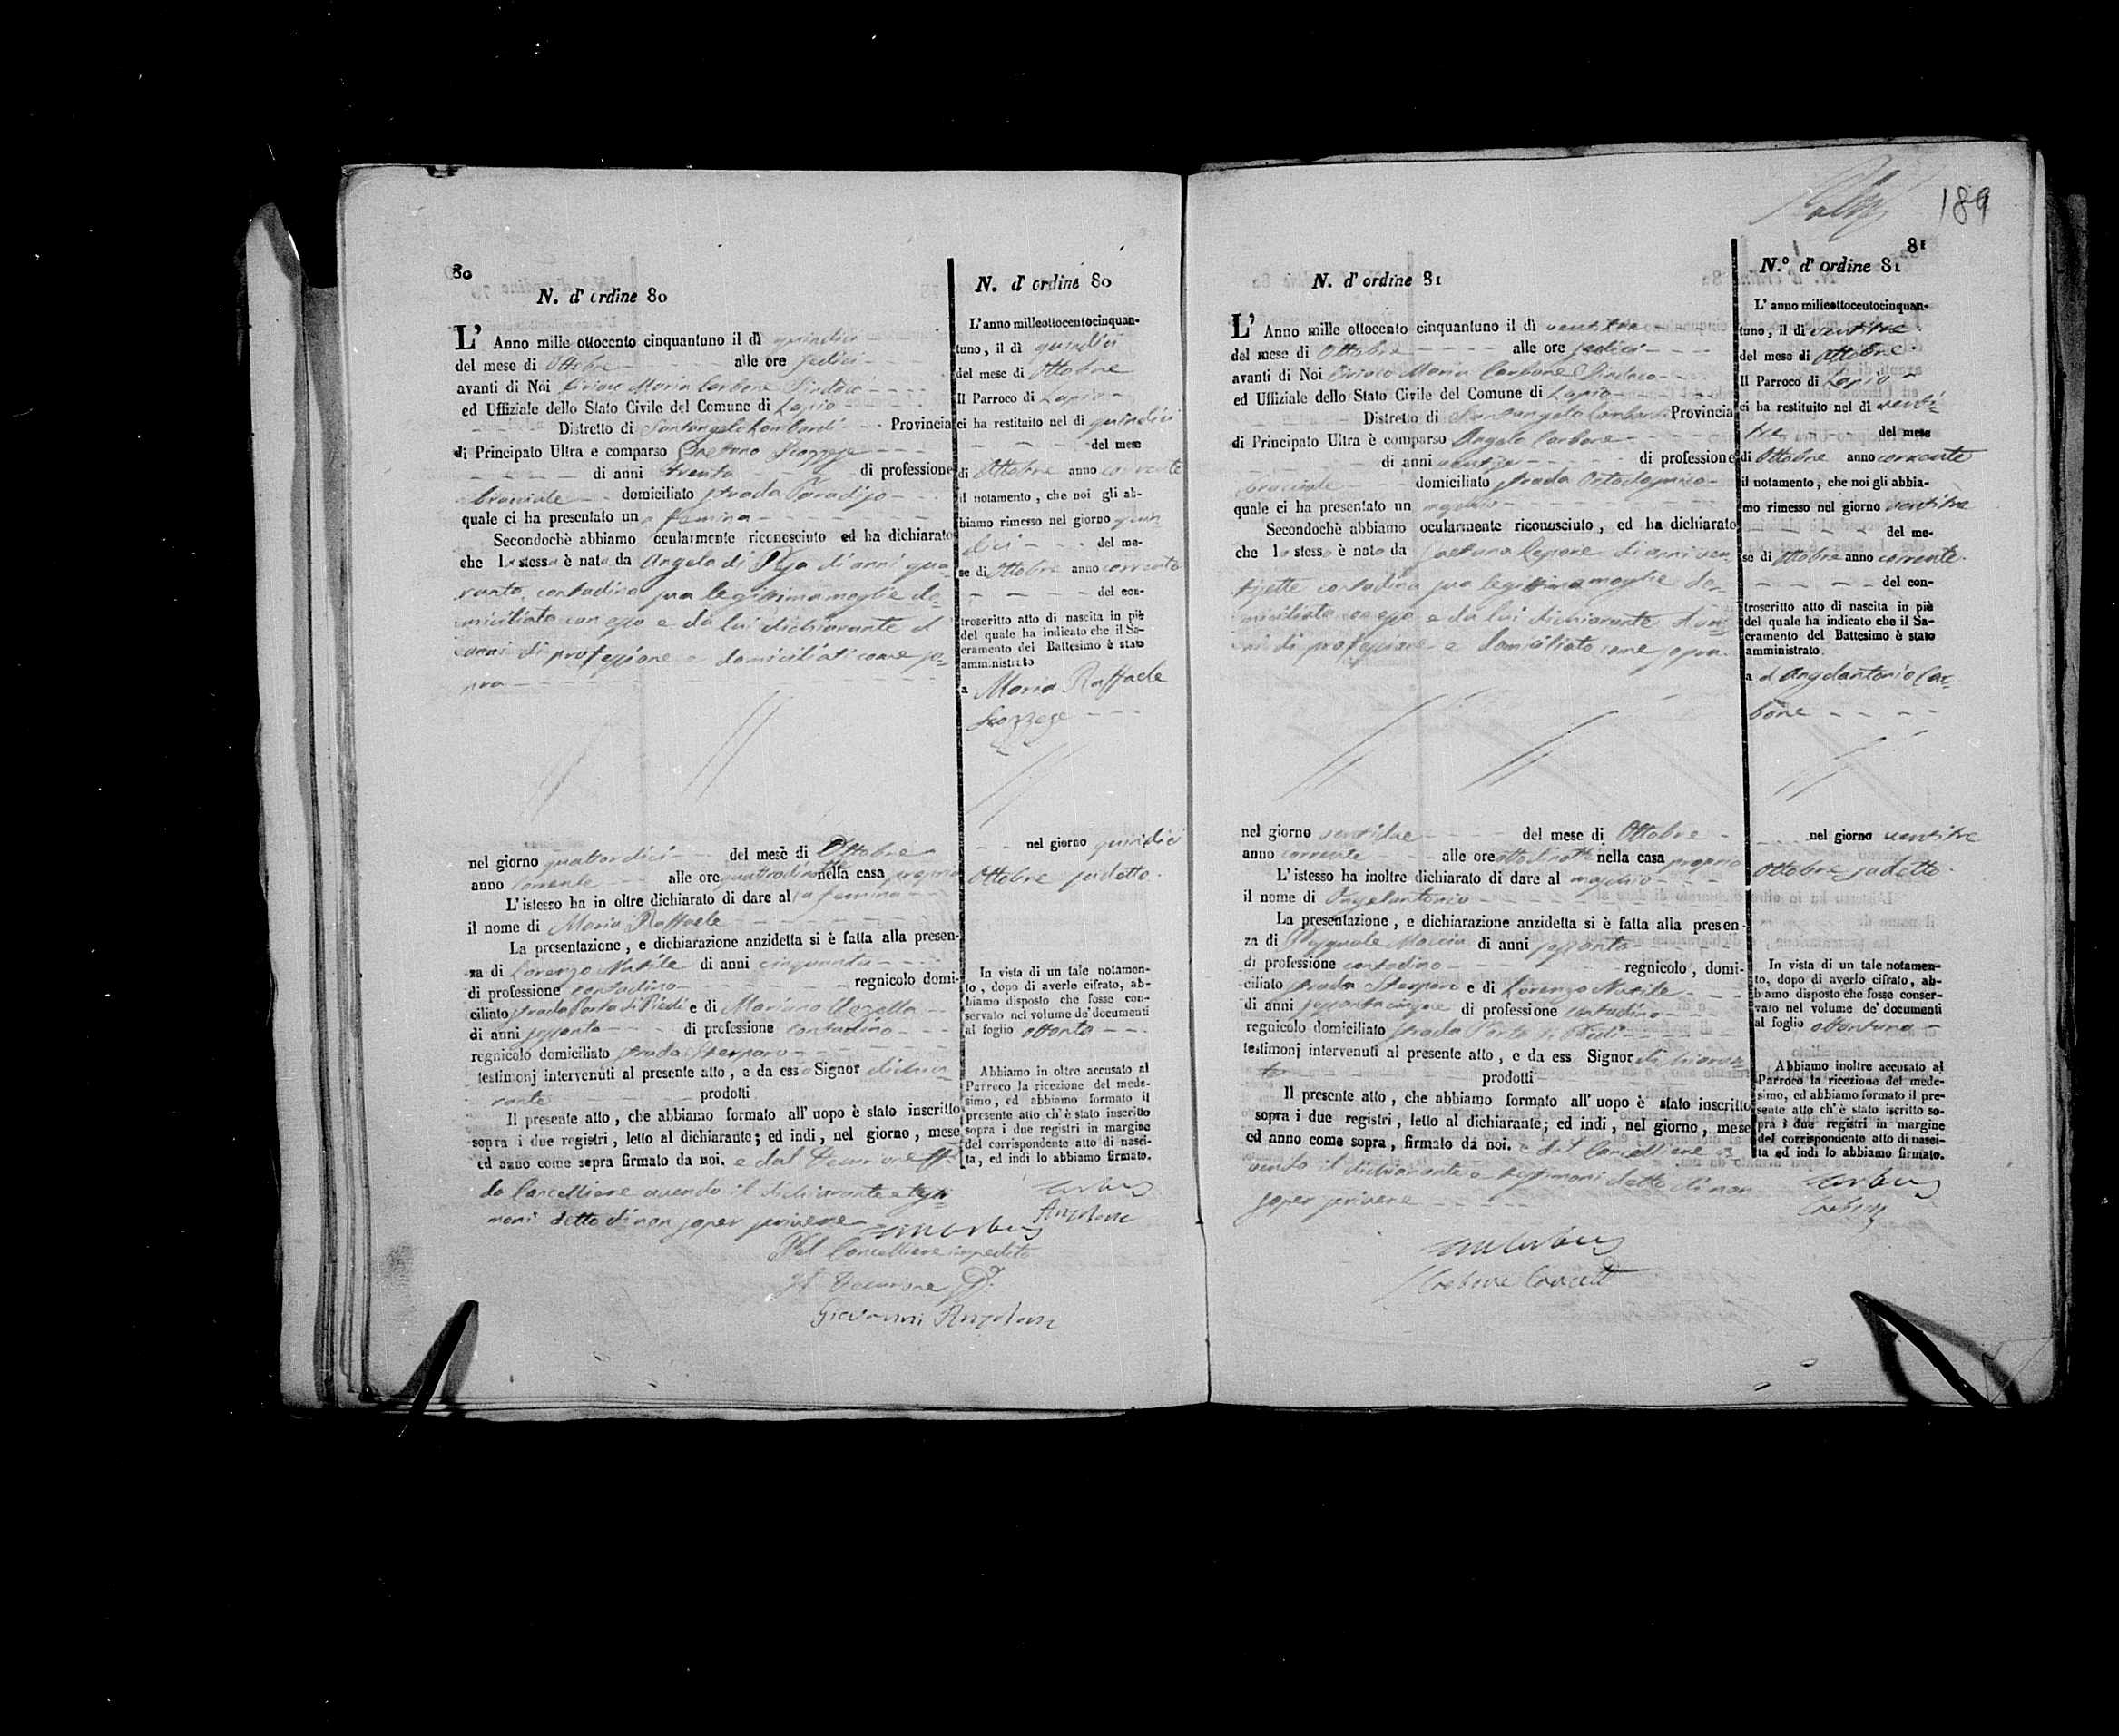 80
N. d' ordine 80
L' Anno mille ottocento cinquantuno il dì quindici
del mese di Ottobre alle ore sedici
avanti di Noi Maria Carbone Sindaco
ed Uffiziale dello Stato Civile del Comune di Lapio
Distretto di Santangelo Lombardi Provincia
di Principato Ultra è comparso Gaetano Scozzese
di anni trenta di professione
bracciale domiciliato strada Paradiso
quale ci ha presentato una femina
Secondochè abbiamo ocularmente riconosciuto ed ha dichiarato
che la stessa è nata da Angela di di anni qua-
ranta, contadina sua legittima moglie do-
miciliata con esso e da lui dichiarante d'
anni di professione e domiciliati come so-
pra
nel giorno quattordici del mese di Ottobre
anno corrente alle ore nella casa propria
L'istesso ha in oltre dichiarato di dare alla femina
il nome di Maria Raffaele
La presentazione, e dichiarazione anzidetta si è fatta alla presen-
za di Lorenzo Natile di anni cinquanta
di professione contadino regnicolo domi-
ciliato strada Porta di Piedi e di Mariano
di anni sessanta di professione contadino
regnicolo domiciliato strada Sterparo
testimonj intervenuti al presente atto, e da esso Signor dichia-
rante prodotti
Il presente atto, che abbiamo formato all' uopo è stato inscritto
sopra i due registri, letto al dichiarante; ed indi, nel giorno, mese
ed anno come sopra firmato da noi. e dal Decurione ff.
da Cancelliere avendo il dichiarante e testi-
moni detto di non saper scrivere
Pel Cancelliere impedito
Il Decurione
Giovanni Anzalone
N. d' ordine 80
L' anno milleottocentocinquan-
tuno, il dì quindici
del mese di Ottobre
Il Parroco di Lapio
ci ha restituito nel dì quindici
del mese
di Ottobre anno corrente
il notamento, che noi gli ab-
biamo rimesso nel giorno quin
dici del me-
se di Ottobre anno corrente
del con-
troscritto atto di nascita in piè
del quale ha indicato che il Sa-
cramento del Battesimo è stato
amministrato
a Maria Raffaele
Scozzese
nel giorno quindici
Ottobre sudetto.
In vista di un tale notamen-
to, dopo di averlo cifrato, ab-
biamo disposto che fosse con-
servato nel volume de' documenti
al foglio ottanta
Abbiamo in oltre accusato al
Parroco la ricezione del mede-
simo, ed abbiamo formato il
presente atto ch' è stato inscritto
sopra i due registri in margine
del corrispondente atto di nasci-
ta, ed indi lo abbiamo firmato.
Anzalone
189
81
N. d' ordine 81
L' Anno mille ottocento cinquantuno il dì ventitre
del mese di Ottobre alle ore sedici
avanti di Noi Maria Carbone Sindaco
ed Uffiziale dello Stato Civile del Comune di Lapio
Distretto di Santangelo Lombardi Provincia
di Principato Ultra è comparso Angelo Carbone
di anni di professione
bracciale domiciliato strada
quale ci ha presentato un maschio
Secondochè abbiamo ocularmente riconosciuto, ed ha dichiarato
che lo stesso è nato da Gaetana Lepore di anni ven-
tisette contadina sua legittima moglie do-
miciliata con esso e da lui dichiarante d'an-
ni di professione e domiciliato come sopra
nel giorno ventidue del mese di Ottobre
anno corrente alle ore nella casa propria
L'istesso ha inoltre dichiarato di dare al maschio
il nome di Angelantonio
La presentazione, e dichiarazione anzidetta si è fatta alla presen-
za di Pasquale di anni sessanta
di professione contadino regnicolo, domi-
ciliato strada Sterparo e di Lorenzo Natile
di anni sessantacinque di professione contadino
regnicolo domiciliato strada Porta di Piedi
testimonj intervenuti al presente atto, e da ess Signor dichiaran-
te prodotti
Il presente atto, che abbiamo formato all' uopo è stato inscritto
sopra i due registri, letto al dichiarante; ed indi, nel giorno, mese
ed anno come sopra, firmato da noi. e dal Cancelliere a-
vendo il dichiarante e testimoni detto di non
saper scrivere
N.º d' ordine 81
L' anno milleottocentocinquan-
tuno, il dì ventitre
del mese di Ottobre
Il Parroco di Lapio
ci ha restituito nel dì venti-
tre del mese
di Ottobre anno corrente
il notamento, che noi gli abbia-
mo rimesso nel giorno ventitre
del me-
se di Ottobre anno corrente
del con-
troscritto atto di nascita in piè
del quale ha indicato che il Sa-
cramento del Battesimo è stato
amministrato
a d Angelantonio Car-
bone
nel giorno ventitre
Ottobre sudetto.
In vista di un tale notamen-
to, dopo di averlo cifrato, ab-
biamo disposto che fosse conser-
vato nel volume de' documenti
al foglio ottantuno
Abbiamo inoltre accusato al
Parroco la ricezione del mede-
simo, ed abbiamo formato il pre-
sente atto ch' è stato iscritto so-
pra i due registri in margine
del corrispondente atto di nasci-
ta ed indi lo abbiamo firmato.